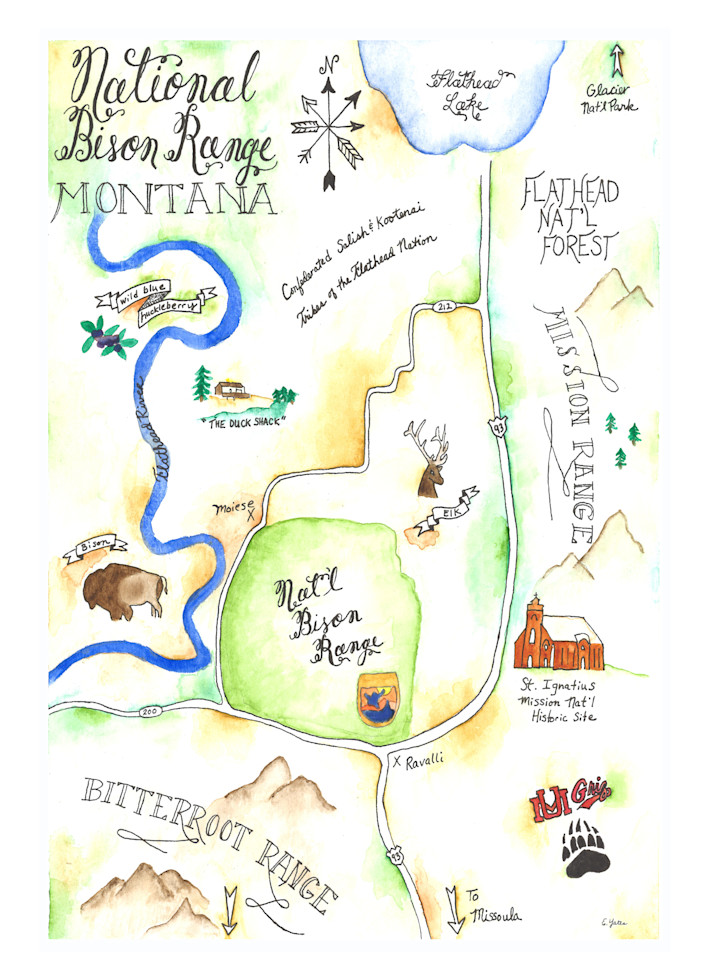 National
Bison Range
MONTANA
N
Flathead
Lake
Glacier
Nat'l Park
FLATHEAD
NAT'L
FOREST
Confederated Salish & Kootenai
Tribes of the Flathead Nation
wild blue
huckleberry
212
MISSION RANGE
Flathead River
"THE DUCK SHACK"
93
Moiese
X
Elk
Bison
Nat'l
Bison
Range
St. Ignatius
Mission Nat'l
Historic Site
200
X Ravalli
BITTERROOT RANGE
UM Griz
93
To
Missoula
E. Yates